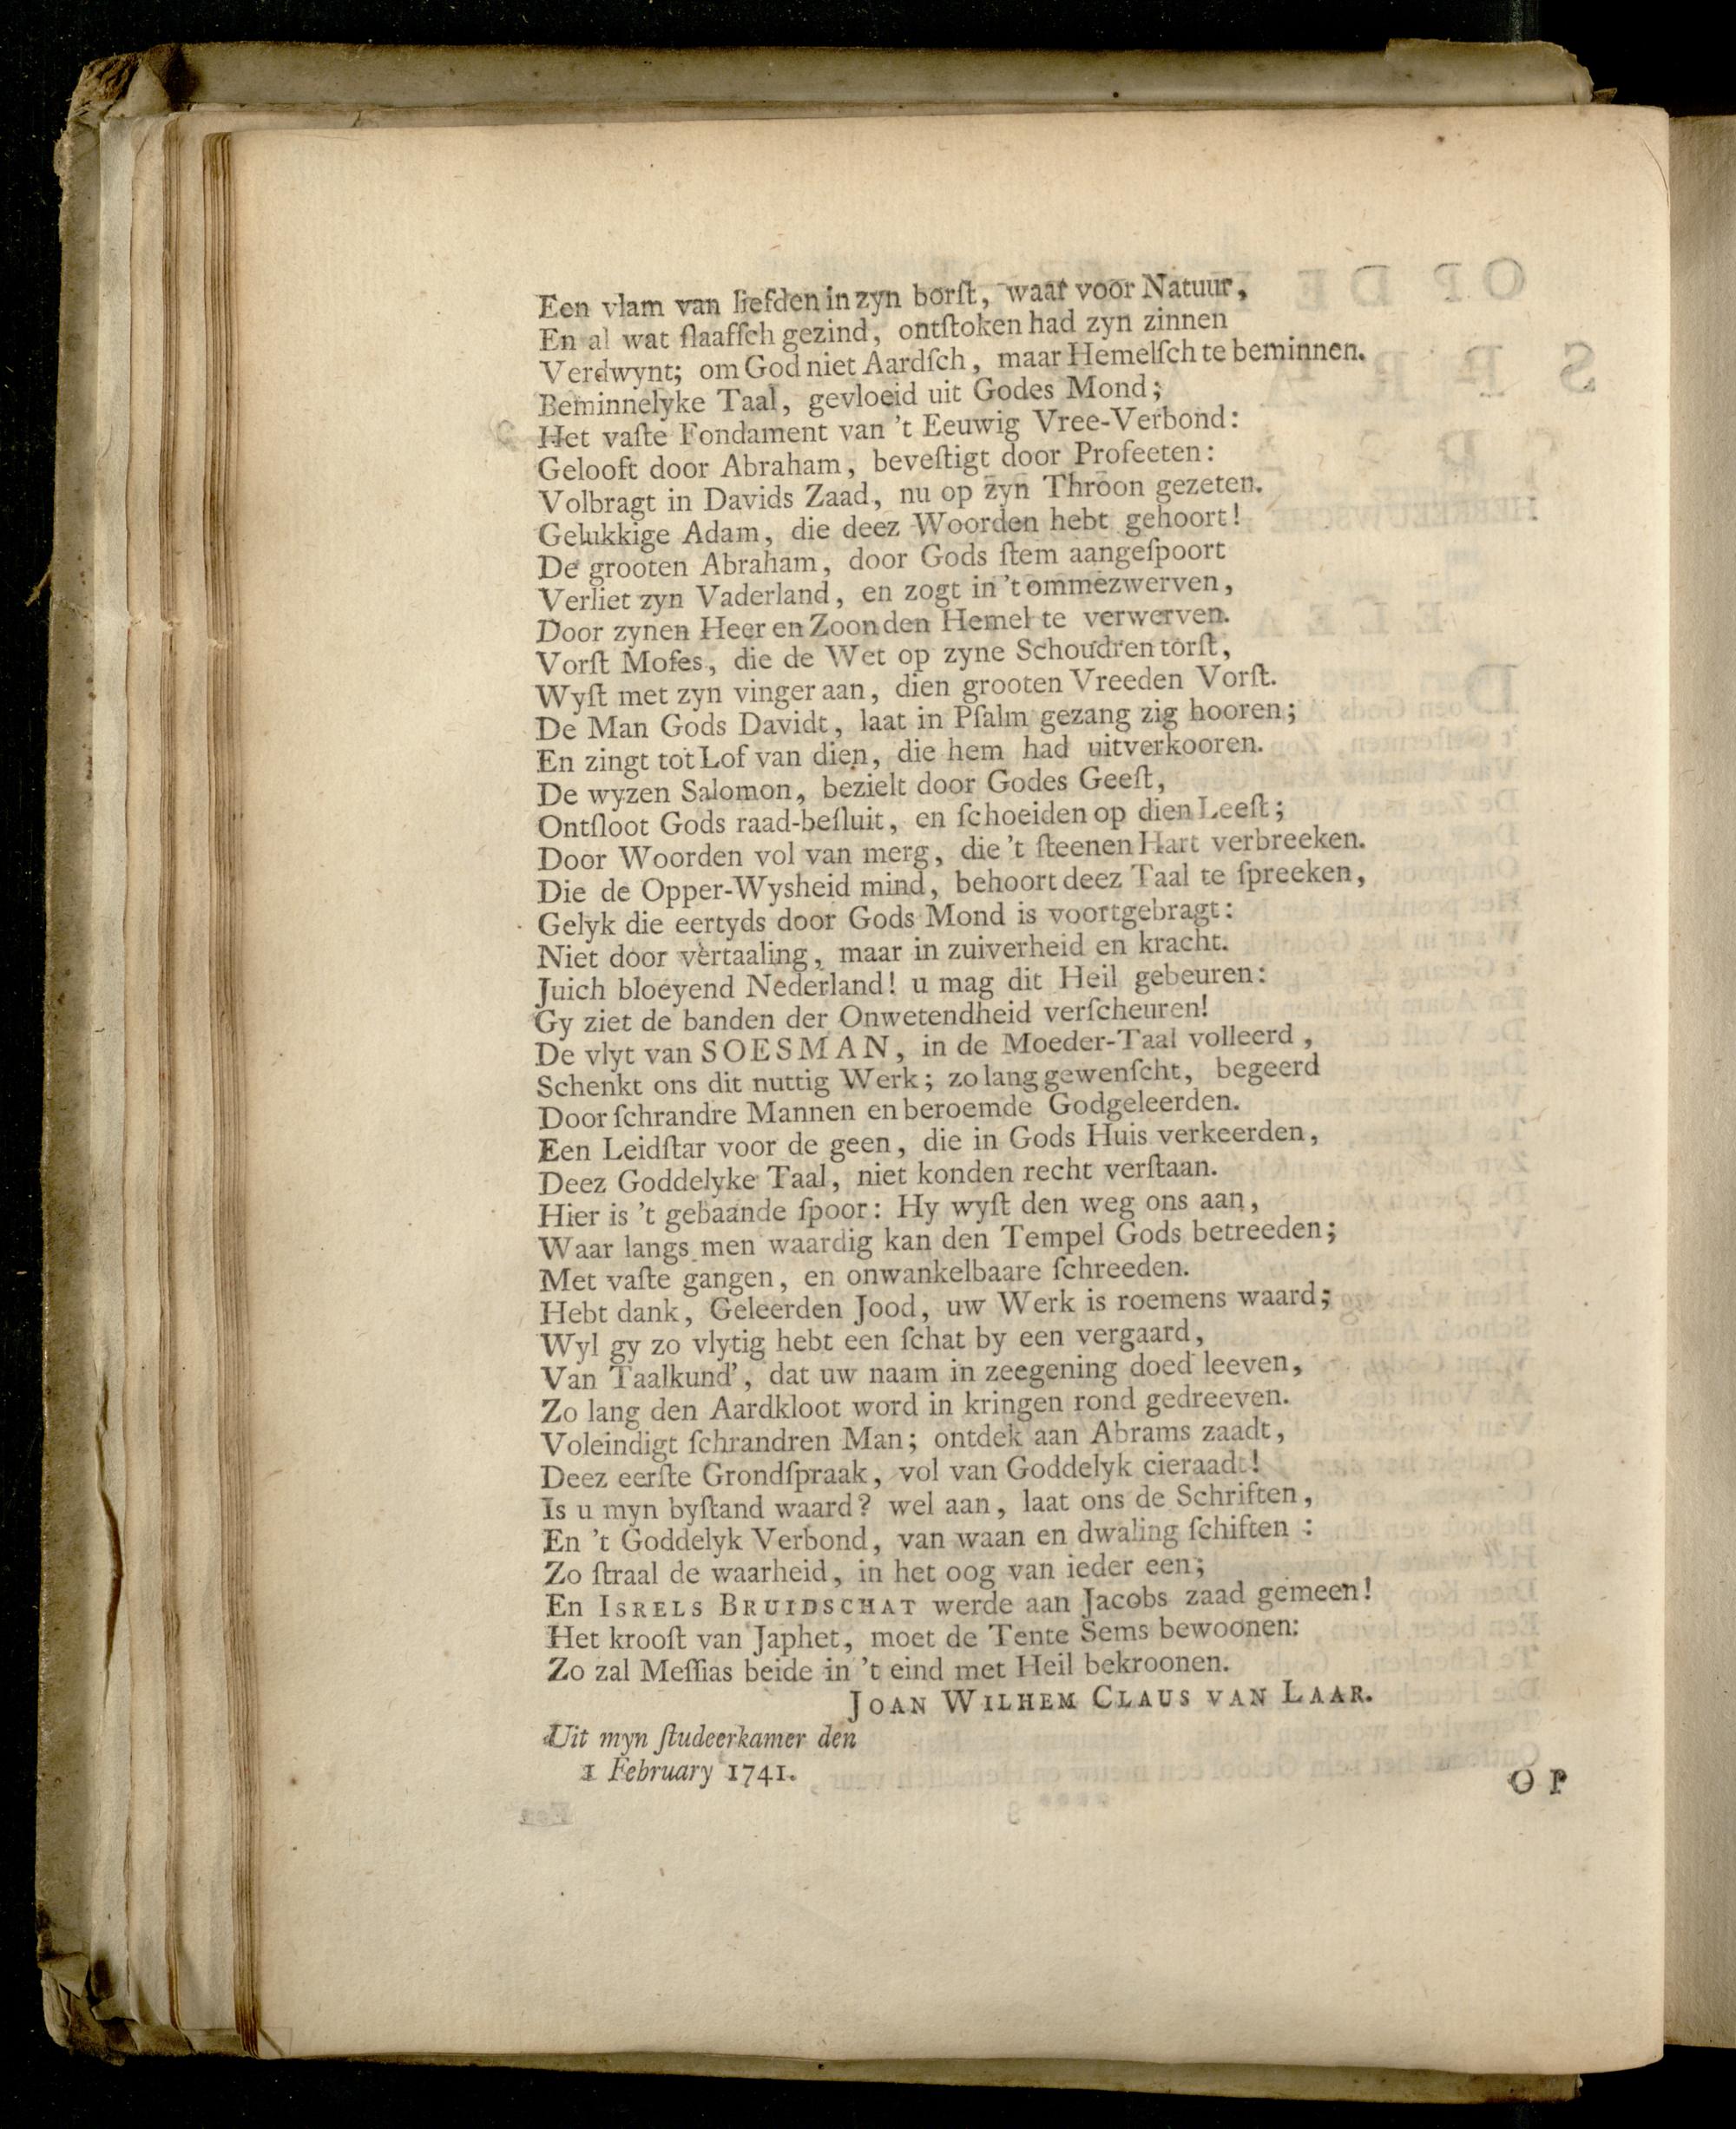 Een vlam van liefden in zyn borſt, waar voor Natuur,
En al wat ſlaaffch gezind, ontſtoken had zyn zinnen
Verdwynt; om God niet Aardſch, maar Hemelſch te beminnen.
Beminnelyke Taal, gevloeid uit Godes Mond;
Het vaſte Fondament van 't Eeuwig Vree-Verbond:
Gelooft door Abraham, beveſtigt door Profeeten:
Volbragt in Davids Zaad, nu op zyn Throon gezeten.
Gelukkige Adam, die deez Woorden hebt gehoort!
De grooten Abraham, door Gods ſtem aangeſpoort
Verliet zyn Vaderland, en zogt in 't ommezwerven,
Door zynen Heer en Zoon den Hemel te verwerven.
Vorſt Moſes, die de Wet op zyne Schoudren torſt,
Wyſt met zyn vinger aan, dien grooten Vreeden Vorſt.
De Man Gods Davidt, laat in Pſalm gezang zig hooren;
En zingt tot Lof van dien, die hem had uitverkooren.
De wyzen Salomon, bezielt door Godes Geeſt,
Ontſloot Gods raad-beſluit, en ſchoeiden op dien Leeſt;
Door Woorden vol van merg, die 't ſteenen Hart verbreeken.
Die de Opper-Wysheid mind, behoort deez Taal te ſpreeken,
Gelyk die eertyds door Gods Mond is voortgebragt:
Niet door vertaaling, maar in zuiverheid en kracht.
Juich bloeyend Nederland! u mag dit Heil gebeuren:
Gy ziet de banden der Onwetendheid verſcheuren!
De vlyt van SOESMAN, in de Moeder-Taal volleerd,
Schenkt ons dit nuttig Werk; zo lang gewenſcht, begeerd
Door ſchrandre Mannen en beroemde Godgeleerden.
Een Leidſtar voor de geen, die in Gods Huis verkeerden,
Deez Goddelyke Taal, niet konden recht verſtaan.
Hier is 't gebaande ſpoor: Hy wyſt den weg ons aan,
Waar langs men waardig kan den Tempel Gods betreeden;
Met vaſte gangen, en onwankelbaare ſchreeden.
Hebt dank, Geleerden Jood, uw Werk is roemens waard;
Wyl gy zo vlytig hebt een ſchat by een vergaard,
Van Taalkund', dat uw naam in zeegening doed leeven,
Zo lang den Aardkloot word in kringen rond gedreeven.
Voleindigt ſchrandren Man; ontdek aan Abrams zaadt,
Deez eerſte Grondſpraak, vol van Goddelyk cieraadt!
Is u myn byſtand waard? wel aan, laat ons de Schriften,
En 't Goddelyk Verbond, van waan en dwaling ſchiften:
Zo ſtraal de waarheid, in het oog van ieder een;
En ISRELS BRUIDSCHAT werde aan Jacobs zaad gemeen!
Het krooſt van Japhet, moet de Tente Sems bewoonen:
Zo zal Meſſias beide in 't eind met Heil bekroonen.
JOAN WILHEM CLAUS VAN LAAR.
Uit myn ſtudeerkamer den
1 February 1741.
OP